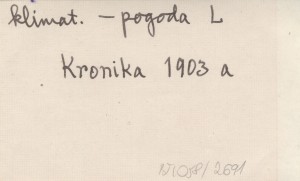 klimat. – pogoda L
Kronika 1903 a
/2691